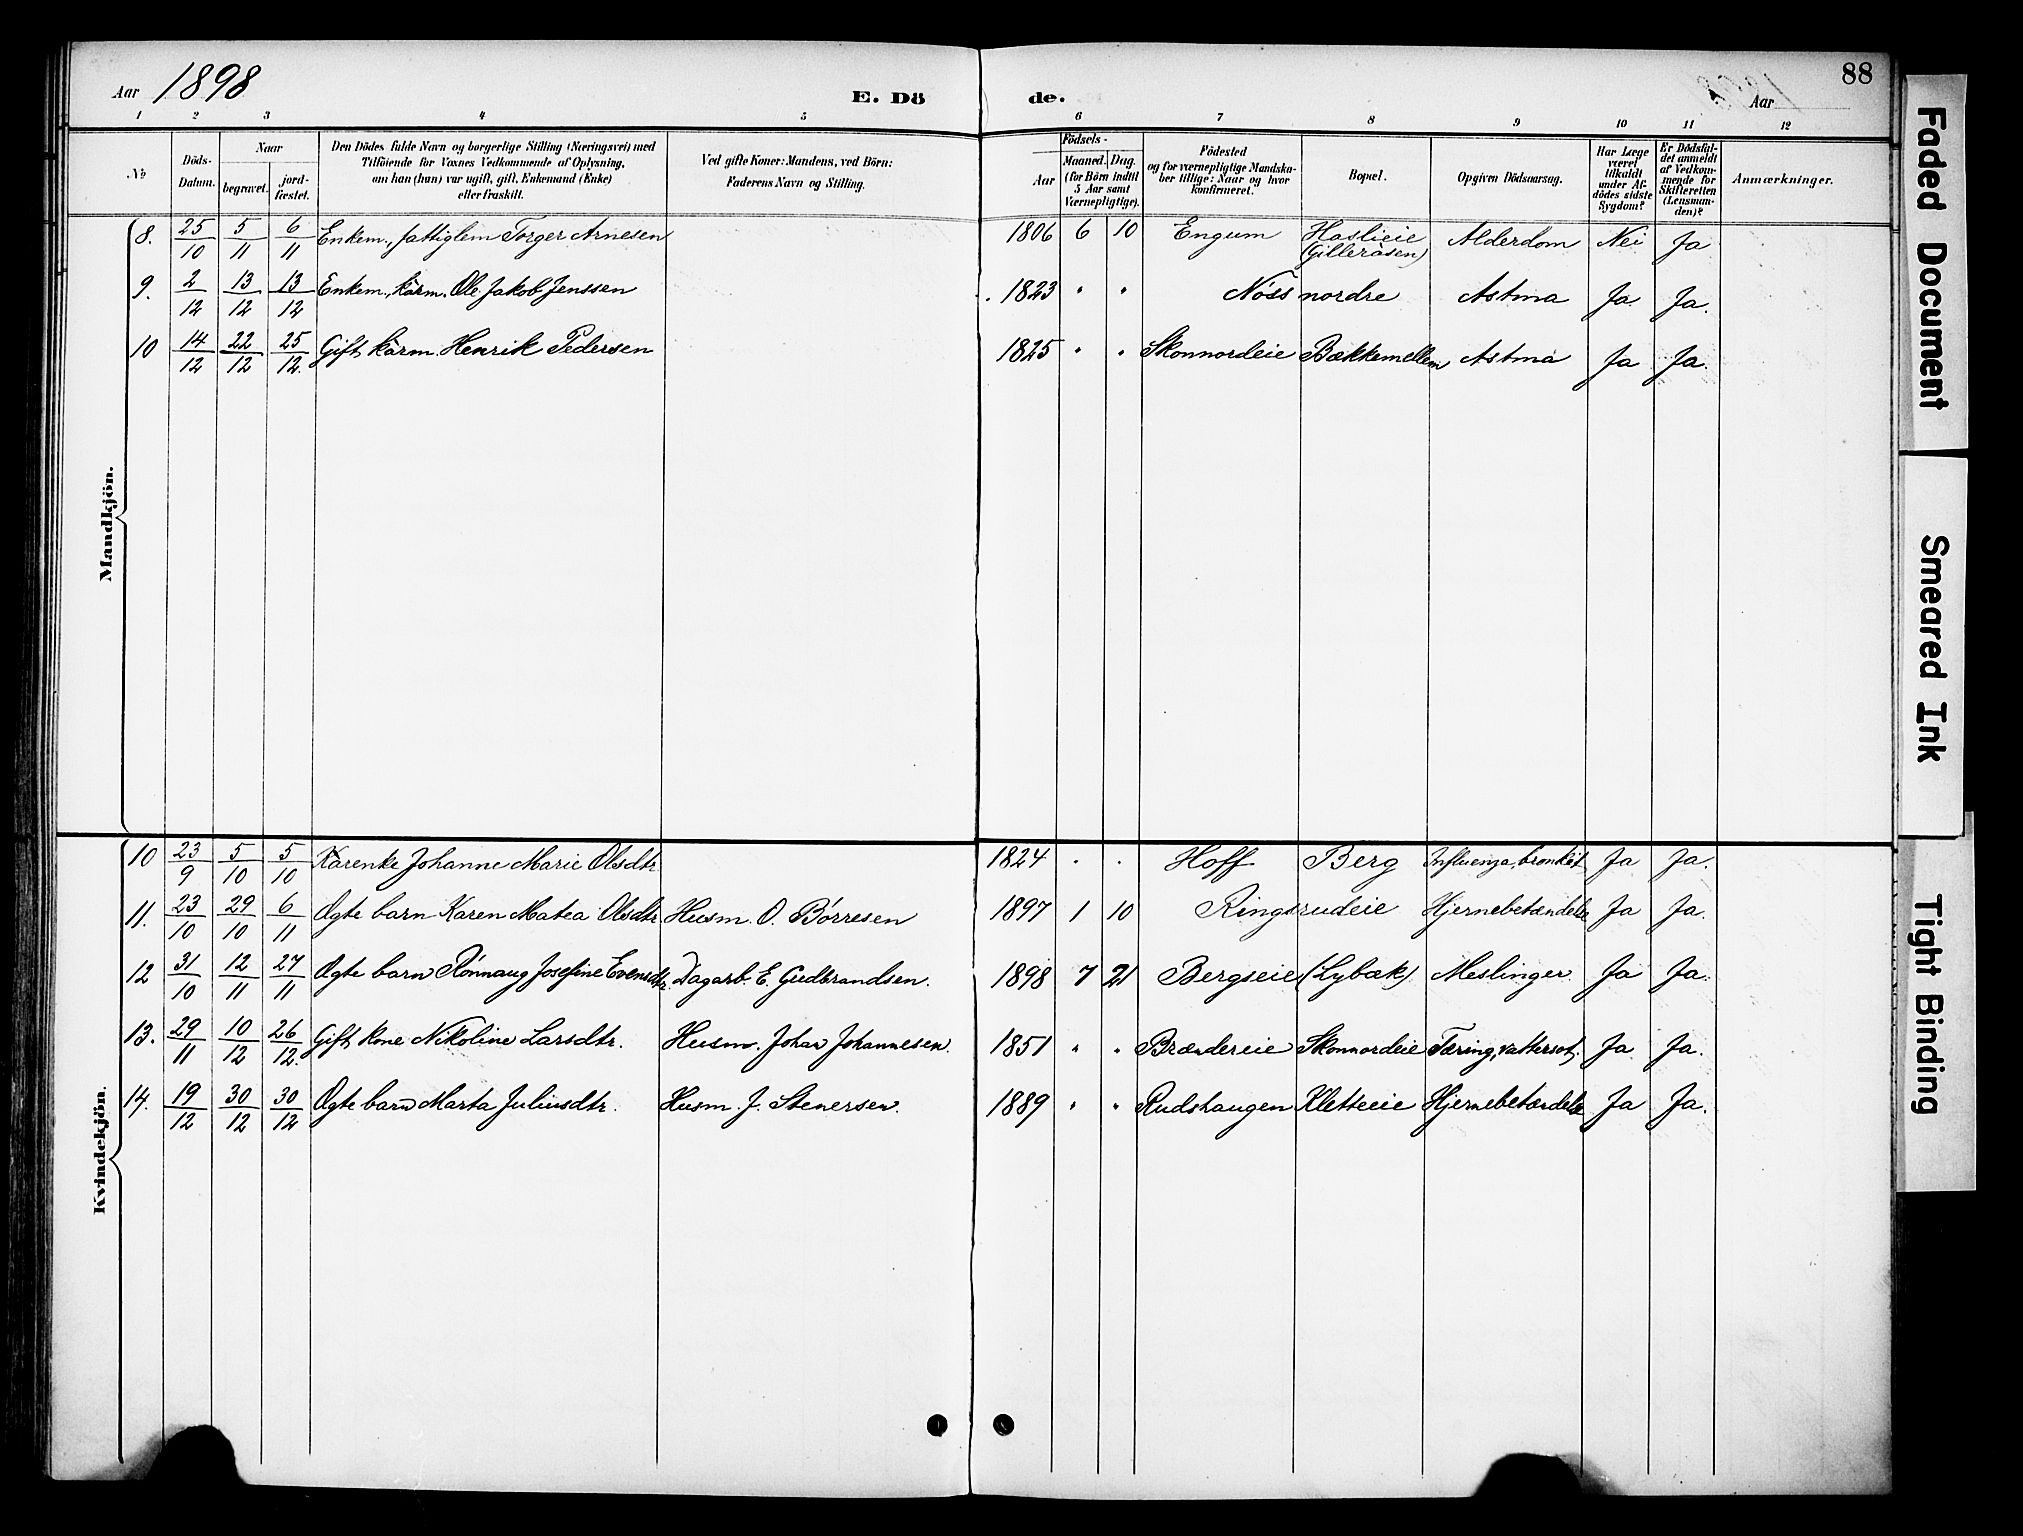 Aar 1898 E. Döde. Aar 88
1 2 3 4 5 6 7 8 9 10 11 12
No Döds-Datum. Naar begravet. jordfæstet. Den Dödes fulde Navn og borgerlige Stilling (Næringsvei) med Tilföiende for Voxnes Vedkommende af Oplysning, om han (hun) var ugift, gift, Enkemand (Enke) eller fraskilt. Ved gifte Koner: Mandens, ved Börn: Faderens Navn og Stilling. Födsels- Aar Maaned. Dag. (for Börn indtil 5 Aar samt Værnepligtige). Födested og for værnepligtige Mandskaber tillige: Naar og hvor konfirmeret. Bopæl. Opgiven Dödsaarsag. Har Læge været tilkaldt under Afdödes sidste Sygdom? Er Dödsfaldet anmeldt af Vedkommende for Skifteretten (Lensmanden)? Anmærkninger.
Mandkjön.
8. 25/10 5/11 6/11 Enkem., fattiglem Torger Arnesen 1806 6 10 Engum Haslieie (Gilleråsen) Alderdom Nei Ja
9. 2/12 13/12 13/12 Enkem., kårm. Ole Jakob Jenssen 1823 " " Nöss nordre Astma Ja Ja.
10 14/12 22/12 25/12 Gift kårm. Henrik Pedersen 1825 " " Skonnordeie Bækkemellem Astma Ja Ja.
Kvindekjön.
10 23/9 5/10 5/10 Kårenke Johanne Marie Olsdtr. 1824 " " Hoff Berg Influenza, bronkit Ja Ja.
11. 23/10 29/10 6/11 Ægte barn Karen Matea Olsdtr. Husm. O. Börresen 1897 1 10 Ringsrudeie Hjernebetændelse Ja Ja.
12 31/10 12/11 27/11 Ægte barn Rönnaug Josefine Evensdtr. Dagarb. E. Gudbrandsen. 1898 7 21 Bergseie (Lybæk) Meslinger. Ja Ja.
13. 29/11 10/12 26/12 Gift kone Nikoline Larsdtr. Husm. Johan Johannesen. 1851 " " Brændereie Skonnordeie Tæring, vattersot. Ja Ja.
14. 19/12 30/12 30/12 Ægte barn Marta Juliusdtr. Husm. J. Stenersen. 1889 " " Rudshaugen Kletteeie Hjernebetændelse Ja Ja.
Faded Document
Smeared Ink
Tight Binding